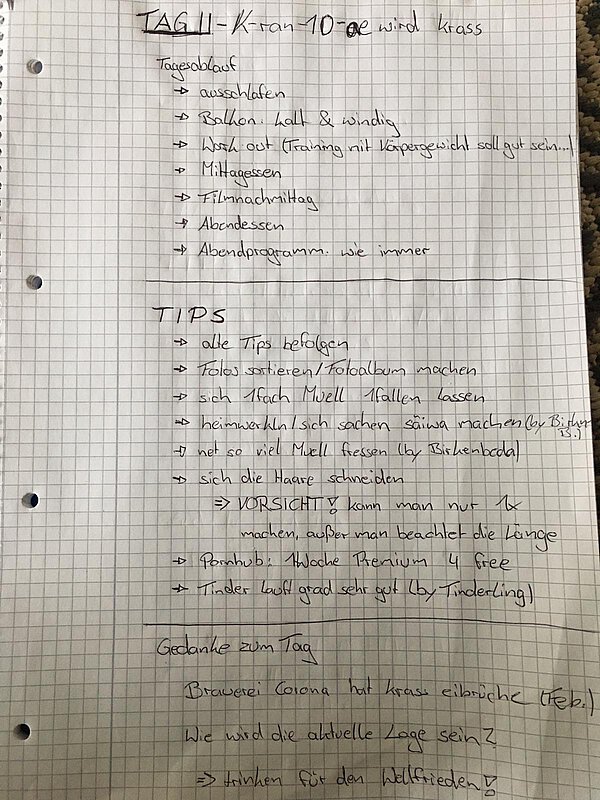 TAG 11 - K-ran-10-ae wird krass
Tagesablauf
→ ausschlafen
→ Balkon: kalt & windig
→ Work out (Training mit Körpergewicht soll gut sein...)
→ Mittagessen
→ Filmnachmittag
→ Abendessen
→ Abendprogramm: wie immer
TIPS
→ alte Tips befolgen
→ Fotos sortieren/Fotoalbum machen
→ sich 1fach Muell 1fallen lassen
→ heimwerkln/sich sachen säiwa machen (by Birken
B.)
→ net so viel Muell fressen (by Birkenbeda)
→ sich die Haare schneiden
⇒ VORSICHT! kann man nur 1x
machen, außer man beachtet die Länge
→ Pornhub: 1Woche Premium 4 free
→ Tinder lauft grad sehr gut (by Tinderling)
Gedanke zum Tag
Brauerei Corona hat krass eibrüche (Feb.)
Wie wird die aktuelle Lage sein?
⇒ trinken für den Weltfrieden!